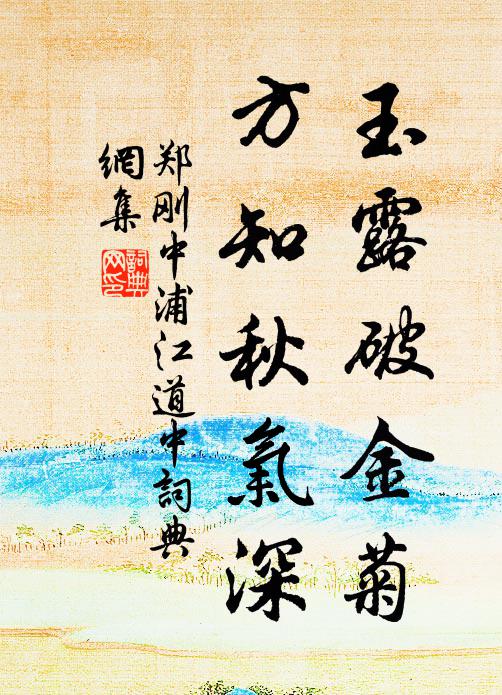 玉露破金菊
方知秋氣深
郑刚中浦江道中詞典
網集
詞典网印